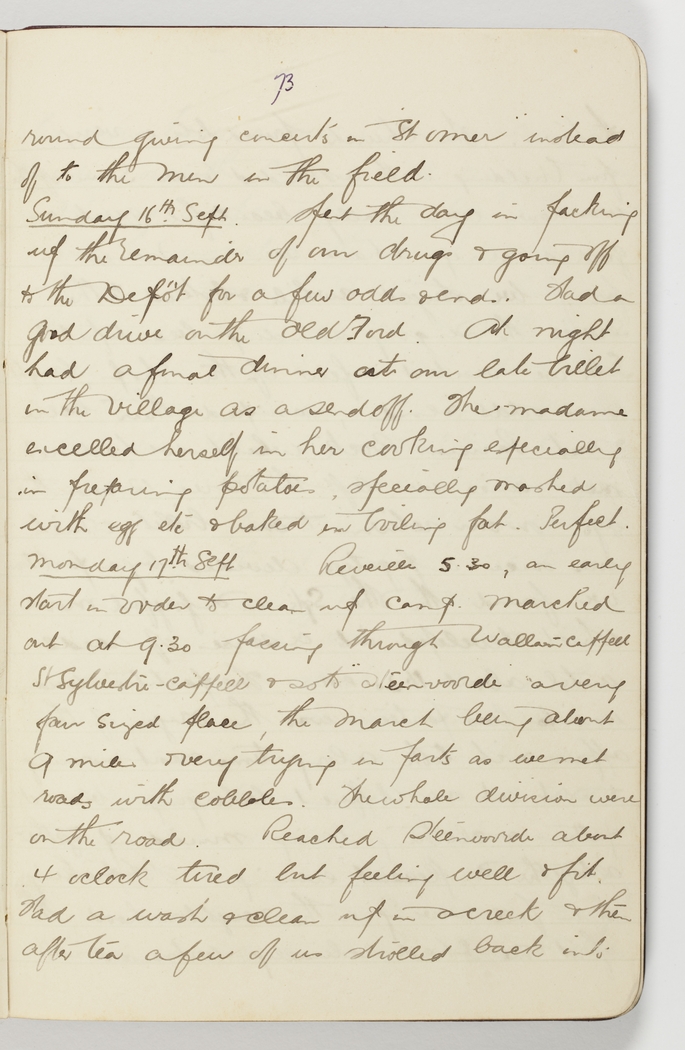 73
round giving concerts in "St omer" instead
of to the men in the field.
Sunday 16th Sept. Spent the day in packing
up the remainder of our drugs & going off
to the Depôt for a few odds & ends. Had a
good drive on the old Ford. At night
had a final dinner at our late billet
in the village as a send off. The madame
excelled herself in her cooking especially
in preparing potatoes, specially mashed
with egg etc & baked in boiling fat. Perfect.
Monday 17th Sept Reveille 5.30, an early
start in order to clean up camp. Marched
out at 9.30 passing through Wallon-cappell
St Sylvestre-cappell & so to "Steenvoorde" a very
fair sized place, the march being about
9 miles & very trying in parts as we met
roads with cobbles. The whole division were
on the road. Reached Steenvoorde about
4 oclock tired but feeling well & fit.
Had a wash & clean up in a creek & then
after tea a few of us strolled back into